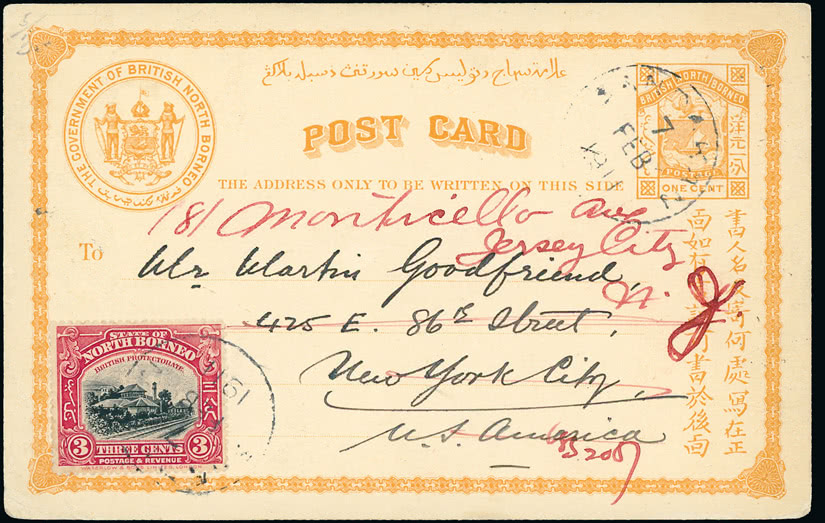 علامة سراج دپوليس كمين سورقن دسبل بلاكڠ
THE GOVERNMENT OF BRITISH NORTH BORNEO
POST CARD
THE ADDRESS ONLY TO BE WRITTEN ON THIS SIDE
BRITISH NORTH BORNEO
洋元一分
POSTAGE
ONE CENT
7
FEB
181 Monticello Ave
Jersey City
N. J.
To Mr Martin Goodfriend,
425 E. 86th Street,
New York City,
U.S. America
STATE OF
NORTH BORNEO
BRITISH PROTECTORATE
3 THREE CENTS 3
POSTAGE & REVENUE
191
書人名
何處寫在正
面如
書於後面